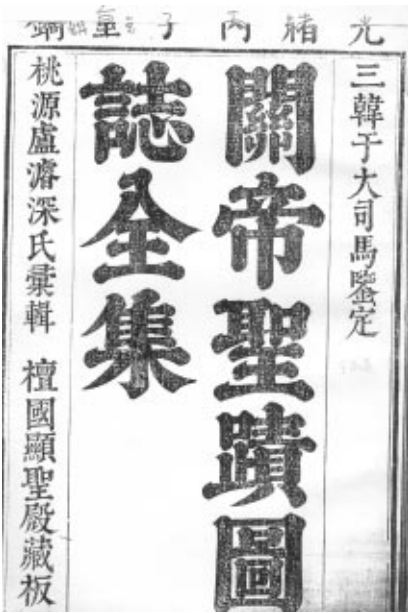 光緒丙子重
三韓于大司馬鑒定
關帝聖蹟圖
誌全集
桃源盧濬深氏彙輯 檀國顯聖殿藏板